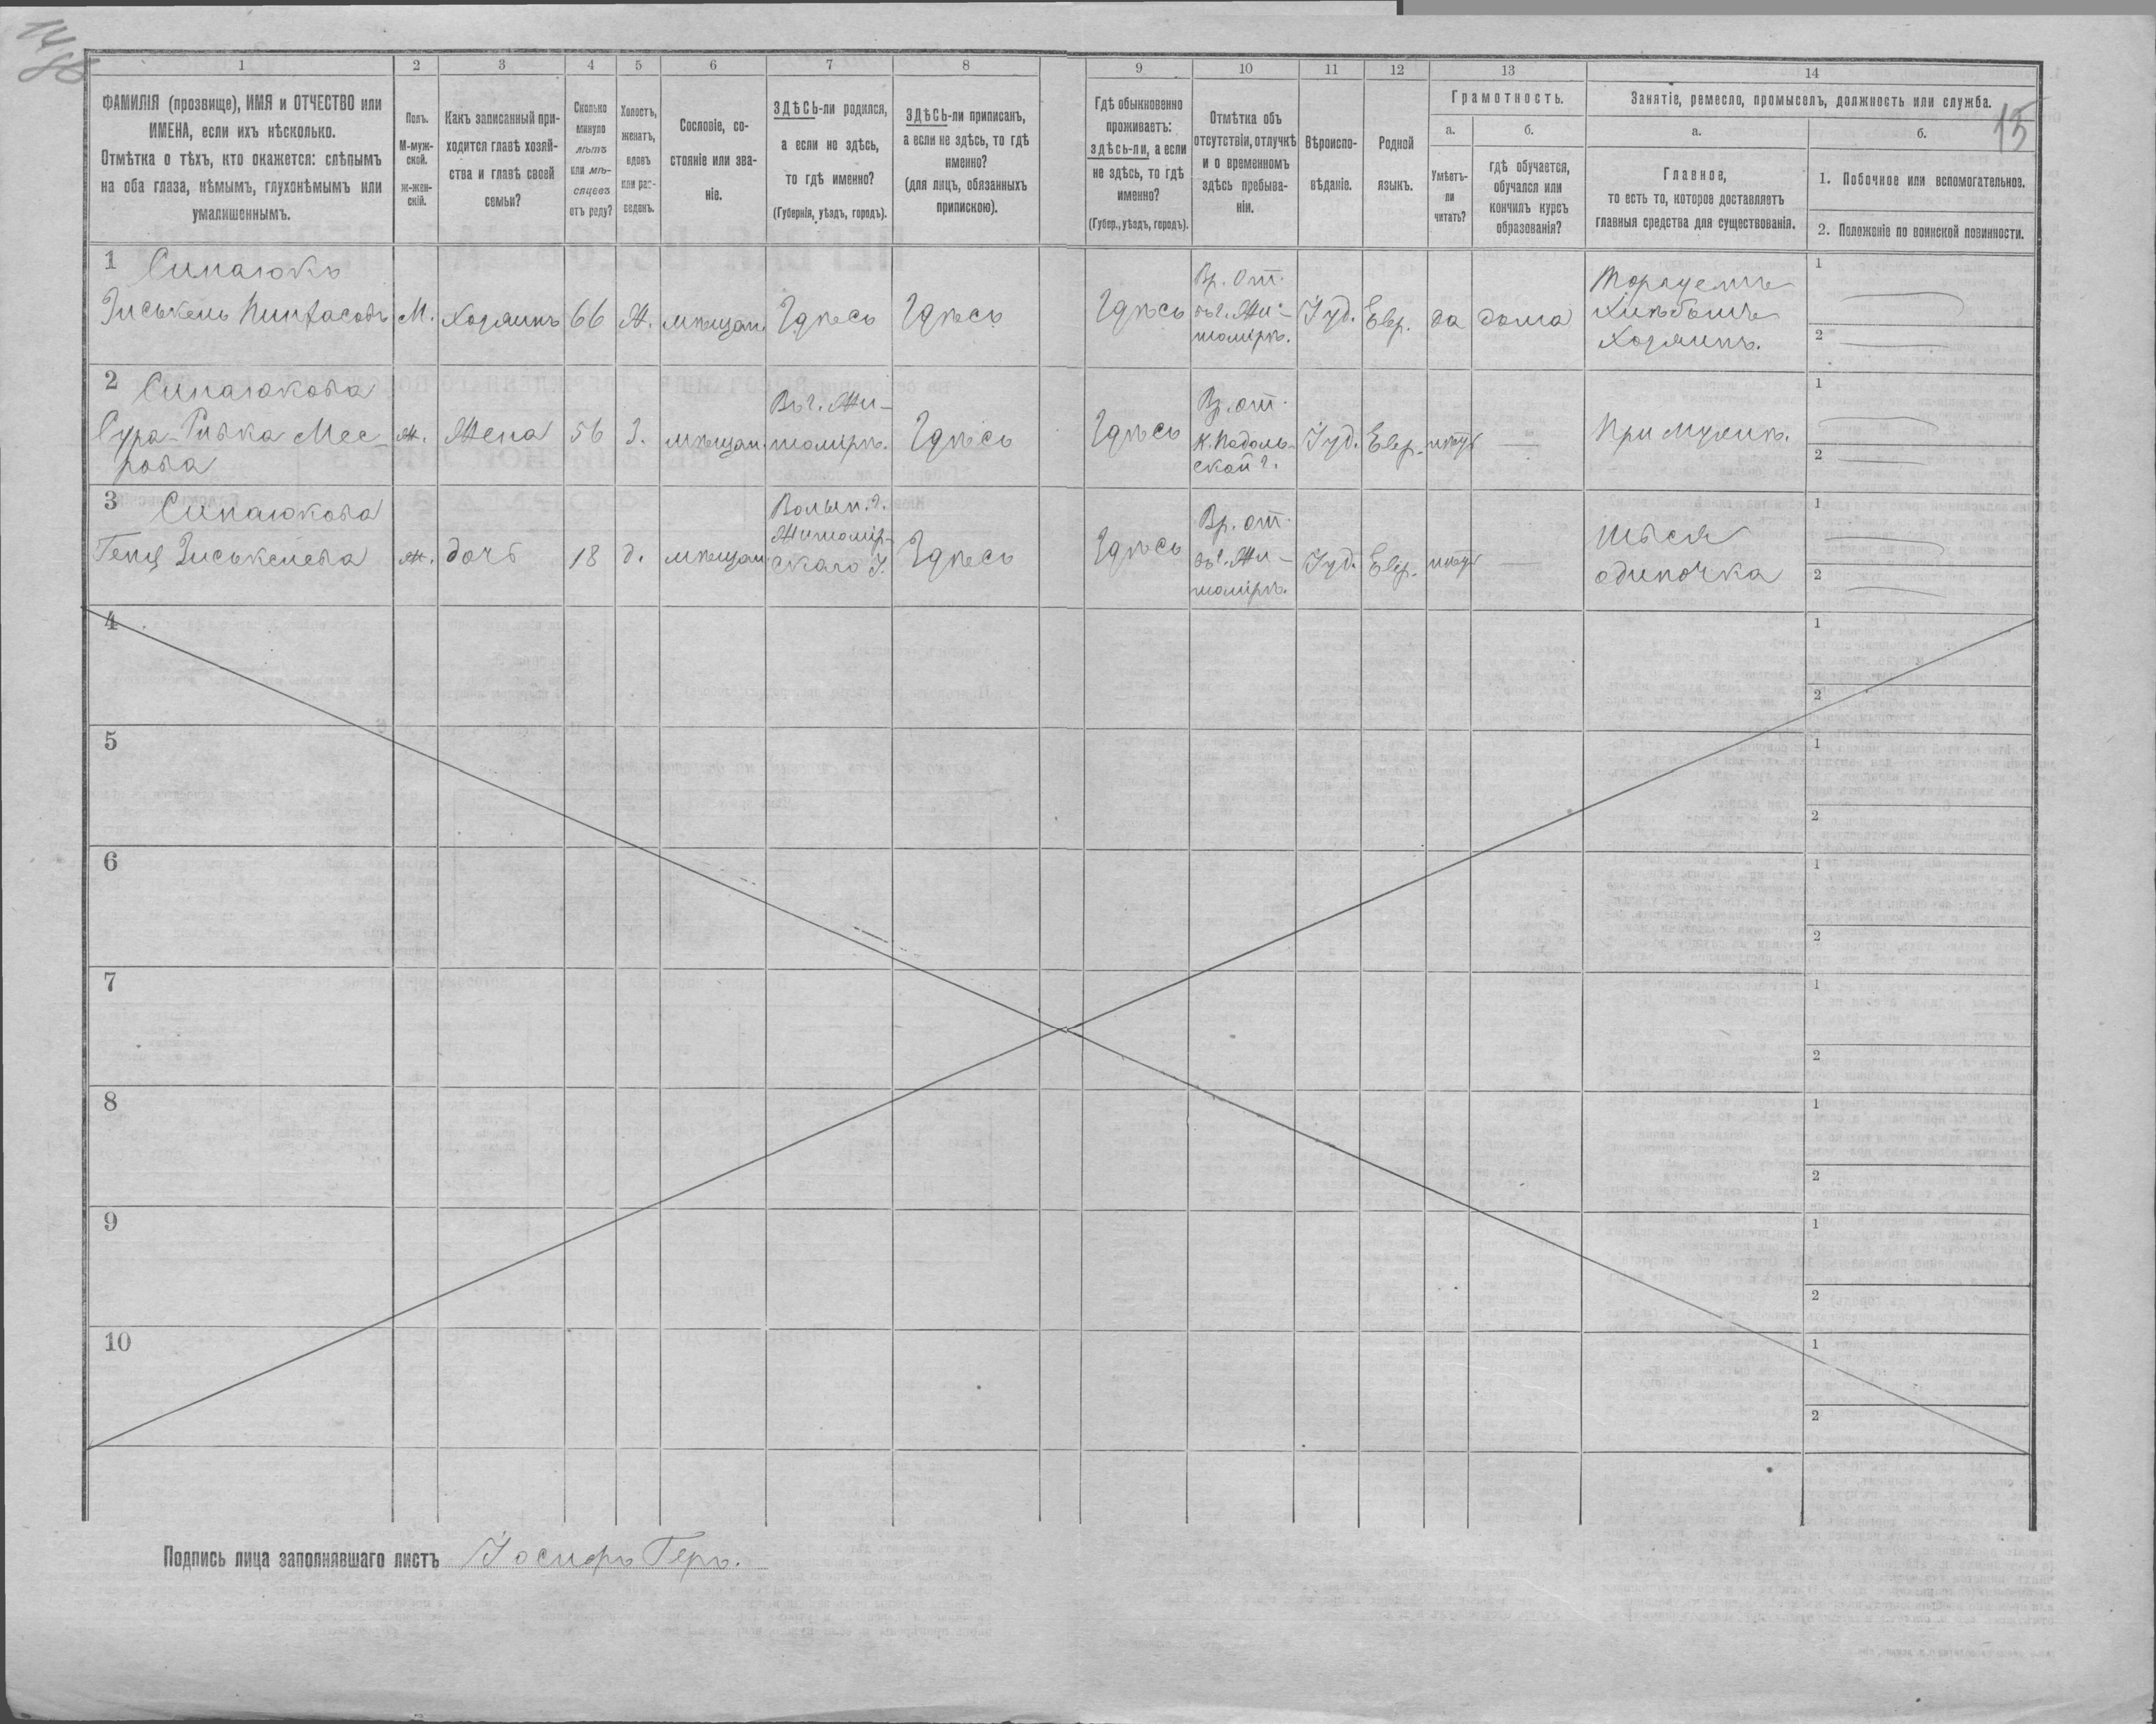 14
15
1
2
3
4
5
6
7
8
9
10
11
12
13
14
ФАМИЛІЯ (прозвище), ИМЯ и ОТЧЕСТВО или
ИМЕНА, если ихъ нѣсколько.
Отмѣтка о тѣхъ, кто окажется: слѣпымъ
на оба глаза, нѣмымъ, глухонѣмымъ или
умалишеннымъ.
Полъ.
М-муж-
ской.
ж-жен-
скій.
Какъ записанный при-
ходится главѣ хозяй-
ства и главѣ своей
семьи?
Сколько
минуло
лѣтъ
или мѣ-
сяцевъ
отъ роду?
Холостъ,
женатъ,
вдовъ
или раз-
веденъ.
Сословіе, со-
стояніе или зва-
ніе.
ЗДѢСЬ-ли родился,
а если не здѣсь,
то гдѣ именно?
(Губернія, уѣздъ, городъ).
ЗДѢСЬ-ли приписанъ,
а если не здѣсь, то гдѣ
именно?
(для лицъ, обязанныхъ
припискою).
Гдѣ обыкновенно
проживаетъ:
здѣсь-ли, а если
не здѣсь, то гдѣ
именно?
(Губер., уѣздъ, городъ).
Отмѣтка объ
отсутствіи, отлучкѣ
и о временномъ
здѣсь пребыва-
ніи.
Вѣроиспо-
вѣданіе.
Родной
языкъ.
Грамотность.
а.
Умѣетъ-
ли
читать?
б.
гдѣ обучается,
обучался или
кончилъ курсъ
образованія?
Занятіе, ремесло, промыселъ, должность или служба.
а.
Главное,
то есть то, которое доставляетъ
главныя средства для существованія.
б.
1. Побочное или вспомогательное.
2. Положеніе по воинской повинности.
1
Зиськель Пинхасовъ
М.
Хозяинъ
66
Ж.
мѣщан.
Здѣсь
Здѣсь
Здѣсь
Вр. От.
въ г. Жи-
томірѣ.
Іуд.
Евр.
да
дома
Торгуетъ
Хлѣбомъ
Хозяинъ.
1
2
2
Сура-Ривка
ж.
Жена
56
З.
мѣщан.
Въ г. Жи-
томірѣ.
Здѣсь
Здѣсь
Вр. от.
К. Подоль-
ской г.
Іуд.
Евр.
нѣтъ
При мужѣ.
1
2
3
Зиськелева
ж.
дочь
18
д.
мѣщан
Волын. г.
Житомір-
скаго У.
Здѣсь
Здѣсь
Вр. от.
въ г. Жи-
томірѣ.
Іуд.
Евр.
нѣтъ
Швея
одиночка
1
2
4
1
2
5
1
2
6
1
2
7
1
2
8
1
2
9
1
2
10
1
2
Подпись лица заполнявшаго листъ Іосифъ Геръ.